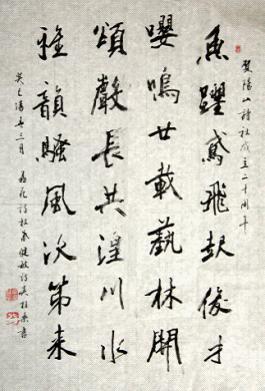 賀陽山詩社成立二十周年
魚躍鳶飛起俊才
嚶鳴廿載藝林開
頌聲長共湟川水
雅韻騷風次第來
癸巳陽春三月 詩社 健敏詩 書